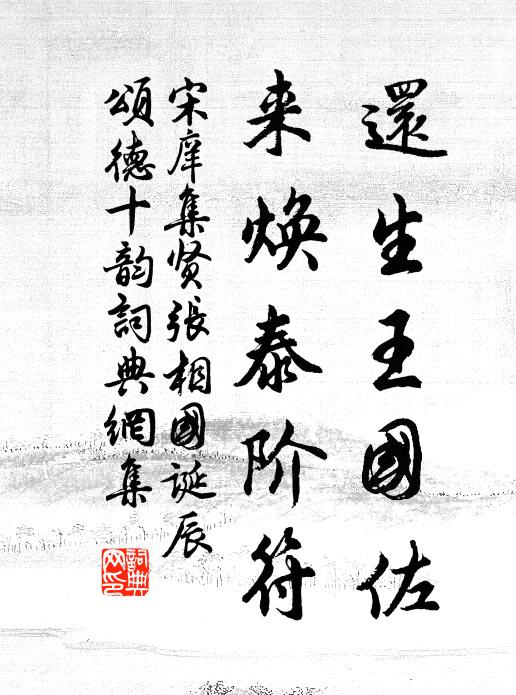 還生王國佐
来焕泰阶符
宋庠集贤張相國誕辰
頌德十韵詞典網集
詞典
网印